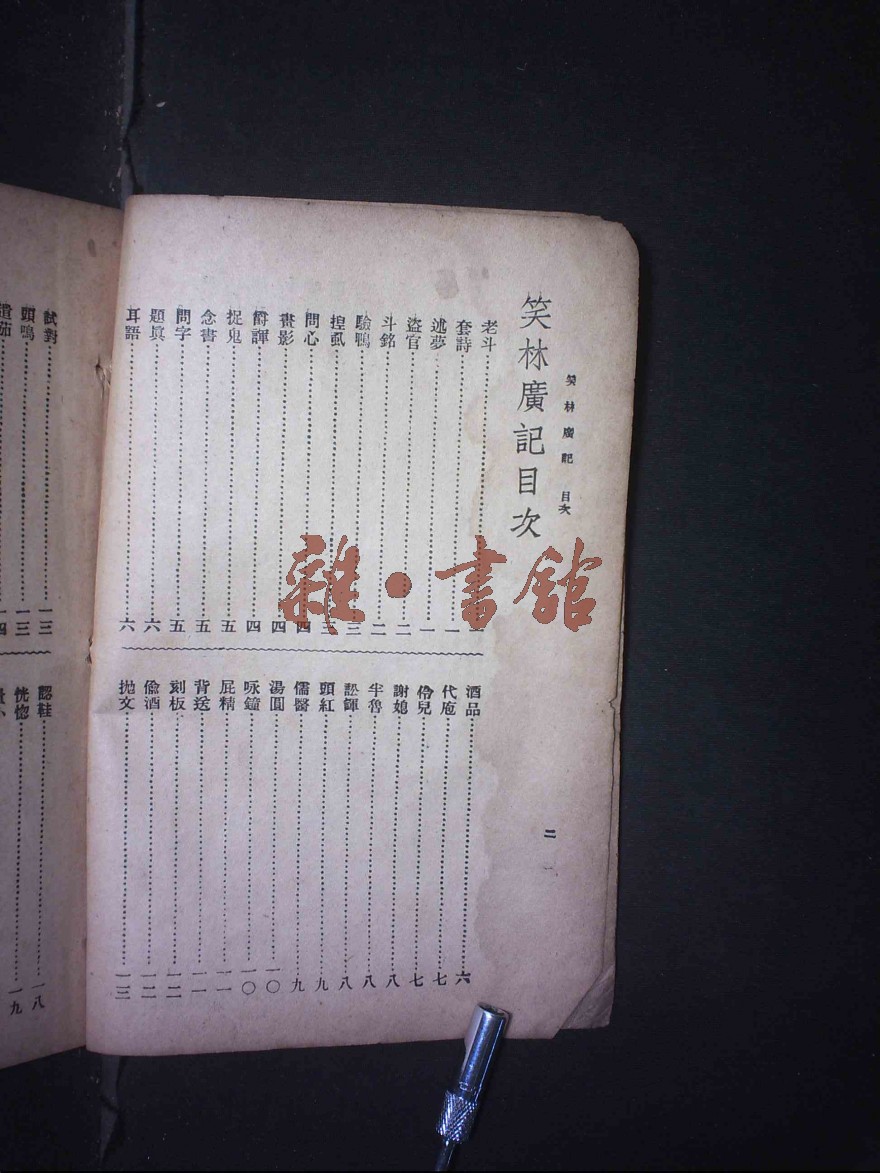 笑林廣記 目次
二
笑林廣記目次
老斗……一
套詩……一
述夢……一
盜官……二
斗銘……二
驗鴨……三
揑虱……三
問心……四
畫影……四
爵諢……四
捉鬼……五
念書……五
問字……五
題眞……六
耳語……六
酒品……六
代庖……七
伶兒……七
謝媳……八
半魯……八
訟鎚……八
頭紅……九
儒醫……九
湯圓……一〇
咏鐘……一〇
屁精……一一
背送……一一
刻板……一二
偸酒……一二
抛文……一三
試對……一三
頭鳴……一三
遺茄……四
認鞋……一八
恍惚……一九
雜·書館